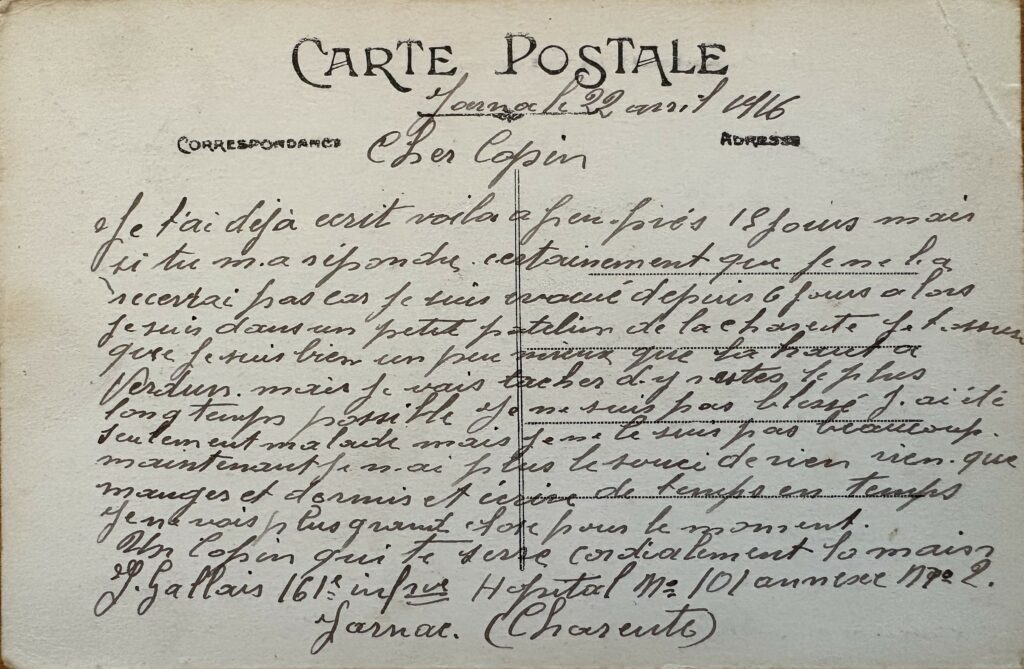 CARTE POSTALE
Jarnac le 22 avril 1916
CORRESPONDANCE
ADRESSE
Cher Copin
Je t'ai déjà ecrit voila a peu-près 15 jours mais
si tu m.a répondu. certainement que je ne la
recevrai pas car je suis evacué depuis 6 jours alors
je suis dans un petit patelin de la charente je t'assure
que je suis bien un peu mieux que la haut a
Verdun. mais je vais tacher d.y rester le plus
longtemps possible Je ne suis pas blessé j.ai été
seulement malade mais je ne le suis pas beaucoup.
maintenant je n.ai plus le souci de rien rien. que
manger et dormir et écrire de temps en temps
Je ne vois plus grand chose pour le moment.
Un Copin qui te serre cordialement la main
J. Gallais 161e infrie Hopital No 101 annexe No 2.
Jarnac. (Charente)